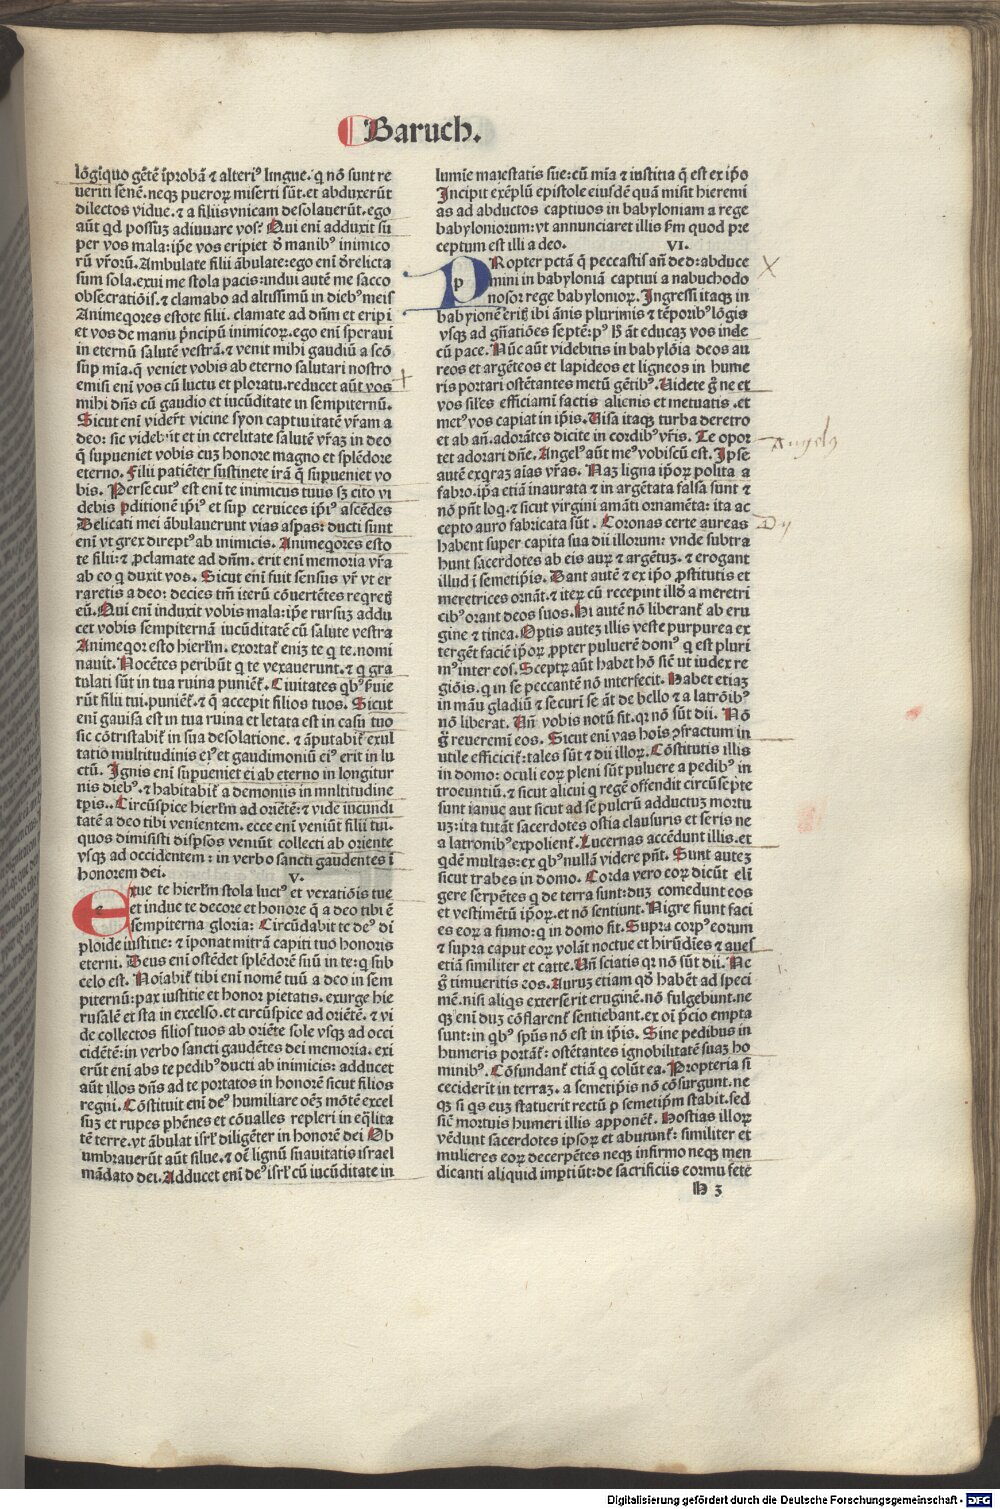 Baruch.
lõgĩquo gẽtẽ ĩprobã ⁊ alteri⁹ lingue. q̇ nõ sunt re
ueriti senẽ. neqꝫ pueroꝝ miserti sũt. et abduxerũt
dilectos vidue. ⁊ a filiis vnicam desolauerũt. ego
aũt qd possuꝫ adiuuare vos? Qui eni adduxit su
per vos mala: ip̃e vos eripiet ð manib⁹ inimico
rũ vr̃orũ. Ambulate filii ãbulate: ego enĩ ðrelicta
sum sola. exui me stola pacis: indui autẽ me sacco
obsecratiõis. ⁊ clamabo ad altissimũ in dieb⁹ meis
Animeqores estote filii. clamate ad dñm et eripi
et vos de manu pñcipũ inimicoꝝ. ego enĩ speraui
in eternũ salutẽ vestrã. ⁊ venit mihi gaudiũ a scõ
sup mĩa. q̃ veniet vobis ab eterno salutari nostro
emisi enĩ vos cũ luctu et ploratu. reducet aũt vos
mihi dñs cũ gaudio et iucũditate in sempiternũ.
Sicut enĩ viderũt vicine syon captiuitatẽ vr̃am a
deo: sic videbũt et in celeritate salutẽ vr̃aꝫ in deo
q̃ supueniet vobis cuꝫ honore magno et splẽdore
eterno. Filii patiẽter sustinete irã q̃ supueniet vo
bis. Persecut⁹ est enĩ te inimicus tuus sꝫ cito vi
debis ꝑditionẽ ip̃i⁹ et sup ceruices ip̃i⁹ ascẽdes
Delicati mei ãbulauerunt vias aspas: ducti sunt
enĩ vt grex dirept⁹ ab inimicis. Animeqores esto
te filii: ⁊ ꝓclamate ad dñm. erit enĩ memoria vr̃a
ab eo q̇ duxit vos. Sicut enĩ fuit sensus vr̃ vt er
raretis a deo: decies tm̃ iterũ cõuertẽtes reqretꝭ
eũ. Qui enĩ induxit vobis mala: ip̃e rursuꝫ addu
cet vobis sempiternã iucũditatẽ cũ salute vestra
Animeqor esto hierl'm. exortat̃ eniꝫ te q̇ te. nomi
nauit. Nocẽtes peribũt q̇ te vexauerunt. ⁊ q̇ gra
tulati sũt in tua ruina puniẽt̃. Ciuitates qb⁹ s̃uie
rũt filii tui. puniẽt̃. ⁊ q̃ accepit filios tuos. Sicut
enĩ gauisa est in tua ruina et letata est in casu tuo
sic cõtristabit̃ in sua desolatione. ⁊ ãputabit̃ exul
tatio multitudinis ei⁹ et gaudimoniũ ei⁹ erit in lu
ctũ. Ignis enĩ supueniet ei ab eterno in longitur
nis dieb⁹. ⁊ habitabit̃ a demoniis in multitudine
tp̃is. Circũspice hierl'm ad oriẽtẽ: ⁊ vide iucundi
tatẽ a deo tibi venientem. ecce enĩ veniũt filii tui.
quos dimisisti dispsos veniũt collecti ab oriente
vsqꝫ ad occidentem: in verbo sancti gaudentes ĩ
honorem dei. V.
e Exue te hierl'm stola luct⁹ et vexatiõis tue
et indue te decore et honore q̃ a deo tibi ẽ
sempiterna gloria: Circũdabit te de⁹ di
ploide iustitie: ⁊ ĩponat mitrã capiti tuo honoris
eterni. Deus enĩ ostẽdet splẽdorẽ suũ in te: q̇ sub
celo est. Noĩabit̃ tibi enĩ nomẽ tuũ a deo in sem
piternũ: pax iustitie et honor pietatis. exurge hie
rusalẽ et sta in excelso. et circũspice ad oriẽtẽ. ⁊ vi
de collectos filios tuos ab oriẽte sole vsqꝫ ad occi
cidẽtẽ: in verbo sancti gaudẽtes dei memoria. exi
erũt enĩ abs te pedib⁹ ducti ab inimicis: adducet
aũt illos dñs ad te portatos in honorẽ sicut filios
regni. Cõstituit enĩ de⁹ humiliare oẽꝫ mõtẽ excel
suꝫ et rupes phẽnes et cõualles repleri in eq̃lita
tẽ terre. vt ãbulat isrl̃ diligẽter in honorẽ dei Ob
umbrauerũt aũt silue. ⁊ oẽ lignũ suauitatis israel
mãdato dei. Adducet enĩ de⁹ isrl̃ cũ iucũditate in
lumĩe maiestatis sue: cũ mĩa ⁊ iustitia q̃ est ex ip̃o
Incipit exẽplũ epistole eiusdẽ quã misit hieremi
as ad abductos captiuos in babyloniam a rege
babyloniorum: vt annunciaret illis s̃m quod pre
ceptum est illi a deo. VI.
p PRopter pctã q̃ peccastis añ deũ: abduce
mini in babyloniã captiui a nabuchodo
nosor rege babylonioꝝ. Ingressi itaqꝫ in
babylonẽ eritꝭ ibi ãnis plurimis ⁊ tẽporib⁹ lõgis
vsqꝫ ad gñatiões septẽ: p⁹ ħ ãt educaꝫ vos inde
cũ pace. Nũc aũt videbitis in babylõia deos au
reos et argẽteos et lapideos et ligneos in hume
ris portari ostẽtantes metũ gẽtib⁹. Videte g̃ ne et
vos siles efficiamĩ factis alienis et metuatis. et
met⁹ vos capiat in ip̃is. Visa itaqꝫ turba deretro
et ab añ. adorãtes dicite in cordib⁹ vr̃is. Te opor
tet adorari dñe. Angel⁹ aũt me⁹ vobiscũ est. Ipse
autẽ exqraꝫ aĩas vr̃as. Naꝫ ligna ip̃oꝝ polita a
fabro. ip̃a etiã inaurata ⁊ in argẽtata falsa sunt ⁊
nõ pñt loq̇. ⁊ sicut virgini amãti ornamẽta: ita ac
cepto auro fabricata sũt. Coronas certe aureas
habent super capita sua dii illorum: vnde subtra
hunt sacerdotes ab eis auꝝ ⁊ argẽtuꝫ. ⁊ erogant
illud ĩ semetip̃is. Dant autẽ ⁊ ex ip̃o ꝓstitutis et
meretrices ornãt. ⁊ iteꝝ cũ recepint illð a meretri
cib⁹ orant deos suos. Hi autẽ nõ liberant̃ ab eru
gine ⁊ tinea. Optis auteꝫ illis veste purpurea ex
tergẽt faciẽ ip̃oꝝ ꝓpter puluerẽ dom⁹ q̇ est pluri
m⁹ inter eos. Sceptꝝ aũt habet hõ siẽ ut iudex re
giõis. q̇ in se peccantẽ nõ interfecit. Habet etiaꝫ
in mãu gladiũ ⁊ securĩ se ãt de bello ⁊ a latrõib⁹
nõ liberat. Vñ vobis notũ sit. qꝛ nõ sũt dii. Nõ
g̃ reueremĩ eos. Sicut enĩ vas hoĩs ꝯfractum in
utile efficicit̃: tales sũt ⁊ dii illoꝝ. Cõstitutis illis
in domo: oculi eoꝝ pleni sũt puluere a pedib⁹ in
troeuntiũ. ⁊ sicut alicui q̇ regẽ offendit circũsepte
sunt ianue aut sicut ad sepulcrũ adductuꝫ mortu
uꝫ: ita tutãt sacerdotes ostia clausuris et seris ne
a latronib⁹ expolient̃. Lucernas accẽdunt illis. et
qdẽ multas: ex qb⁹ nullã videre pñt. Sunt auteꝫ
sicut trabes in domo. Corda vero eoꝝ dicũt elĩ
gere serpẽtes q̇ de terra sunt: duꝫ comedunt eos
et vestimẽtũ ip̃oꝝ. et nõ sentiunt. Nigre fiunt faci
es eoꝝ a fumo: q̇ in domo fit. Supra corp⁹ eorum
⁊ supra caput eoꝝ volãt noctue et hirũdĩes ⁊ aues
etiã similiter et catte. Vñ sciatis qꝛ nõ sũt dii. Ne
g̃ timueritis eos. Auruꝫ etiam qð habẽt ad speci
mẽ. nisi aliqs exterserit eruginẽ. nõ fulgebunt. ne
qꝫ enĩ duꝫ cõflarent̃ sentiebant. ex oĩ p̃cio empta
sunt: in qb⁹ sp̃us nõ est in ip̃is. Sine pedibus in
humeris portãt̃: ostẽtantes ignobilitatẽ suaꝫ ho
minib⁹. Cõfundant̃ etiã q̇ colũt ea. Propterea si
ceciderĩt in terraꝫ. a semetip̃is nõ cõsurgunt. ne
qꝫ si qs euꝫ statuerit rectũ p semetip̃m stabit. sed
siẽ mortuis humeri illis apponẽt̃. Hostias illoꝝ
vẽdunt sacerdotes ipsoꝝ et abutunt̃: similiter et
mulieres eoꝝ decerpẽtes neqꝫ infirmo neqꝫ men
dicanti aliquid imp̃tiũt: de sacrificiis eorum fetẽ
H 3
Digitalisierung gefördert durch die Deutsche Forschungsgemeinschaft - DFG